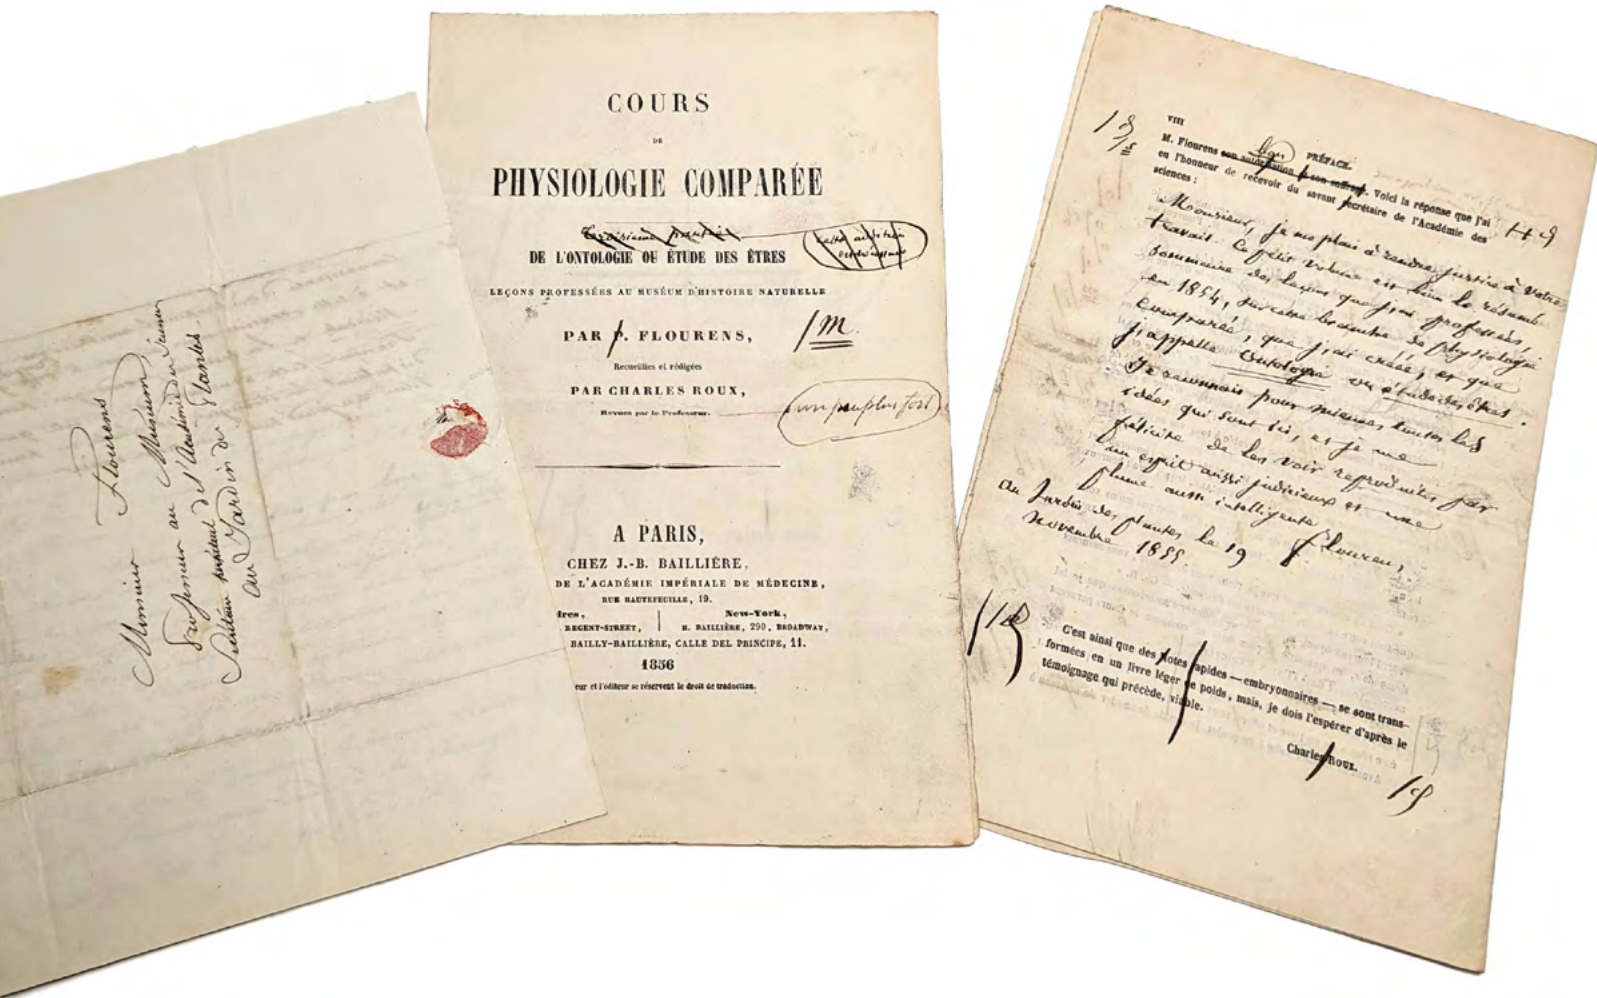 Monsieur
Flourens
Professeur au Museum
Secrétaire perpétuel de l'Académie des Sciences
au Jardin des Plantes
COURS
DE
PHYSIOLOGIE COMPARÉE
Troisième partie
DE L'ONTOLOGIE OU ÉTUDE DES ÊTRES
LEÇONS PROFESSÉES AU MUSÉUM D'HISTOIRE NATURELLE
PAR P. FLOURENS,
/M.
Recueillies et rédigées
PAR CHARLES ROUX,
Revues par le Professeur.
un peu plus fort
A PARIS,
CHEZ J.-B. BAILLIÈRE,
DE L'ACADÉMIE IMPÉRIALE DE MÉDECINE,
RUE HAUTEFEUILLE, 19.
dres,
New-York,
REGENT-STREET,
H. BAILLIÈRE, 290, BROADWAY,
BAILLY-BAILLIÈRE, CALLE DEL PRINCIPE, 11.
1856
eur et l'éditeur se réservent le droit de traduction.
VIII
PRÉFACE.
M. Flourens son autorisation son suffrage. Voici la réponse que j'ai
eu l'honneur de recevoir du savant secrétaire de l'Académie des
sciences :
Monsieur, je me plais à rendre justice à votre
travail. Ce petit volume est bien le résumé
sommaire des leçons que j'ai professées,
en 1854, sur cette branche de physiologie
comparée, que j'ai créée, et que
j'appelle Ontologie ou étude des êtres.
Je reconnais pour miennes toutes les
idées qui sont ici, et je me
félicite de les voir reproduites par
un esprit aussi judicieux et une
plume aussi intelligente
Flourens,
au Jardin des plantes le 19
novembre 1855.
C'est ainsi que des notes rapides — embryonnaires — se sont trans-
formées en un livre léger de poids, mais, je dois l'espérer d'après le
témoignage qui précède, viable.
Charles Roux.